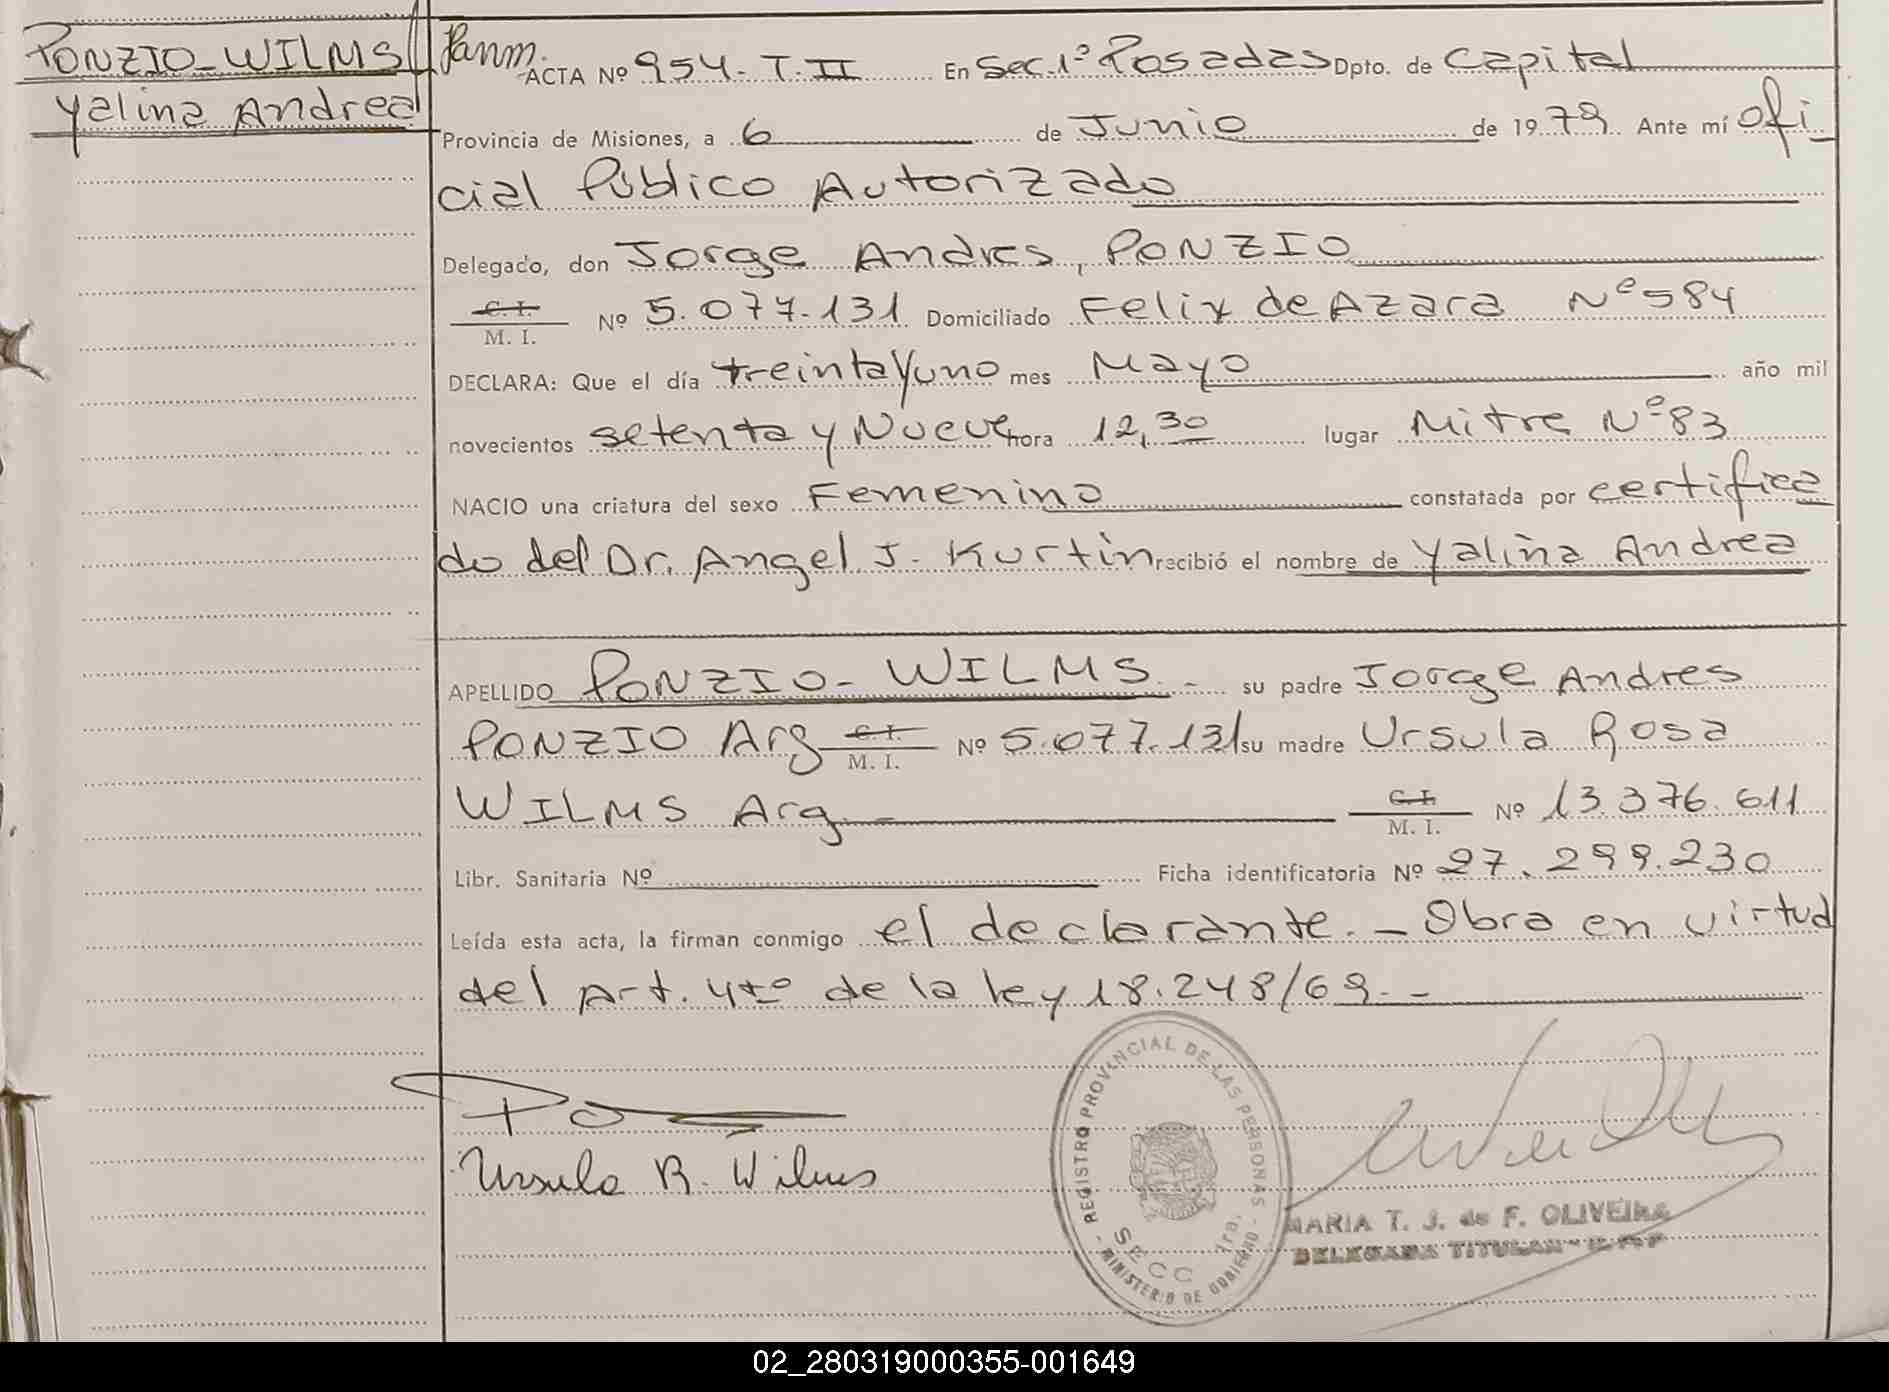 PONZIO-WILMS
Yalina Andrea
ACTA Nº 954- T. II En Sec. 1º Posadas Dpto. de Capital
Provincia de Misiones, a 6 de Junio de 1979 Ante mí Ofi
cial Público Autorizado
Delegado, don Jorge Andres, PONZIO
C. I.
M. I. Nº 5.077.131 Domiciliado Felix de Azara Nº 584
DECLARA: Que el día treinta y uno mes Mayo año mil
novecientos setenta y Nueve hora 12,30 lugar Mitre Nº 83
NACIO una criatura del sexo Femenino constatada por certifica
do del Dr. Angel J. Kurtin recibió el nombre de Yaliña Andrea
APELLIDO PONZIO-WILMS.- su padre Jorge Andres
PONZIO Arg C.I. M. I. Nº 5.077.131 su madre Ursula Rosa
WILMS Arg.- C.I. M. I. Nº 13.376.611
Libr. Sanitaria Nº Ficha identificatoria Nº 27.299.230
Leída esta acta, la firman conmigo el declarante.- Obra en virtud
del Art. 4to de la ley 18.248/69.-
Ursula R. Wilms
REGISTRO PROVINCIAL DE LAS PERSONAS
- MINISTERIO DE GOBIERNO -
SECC 1ra.
MARIA T. J. de F. OLIVEIRA
DELEGADA TITULAR
02_280319000355-001649